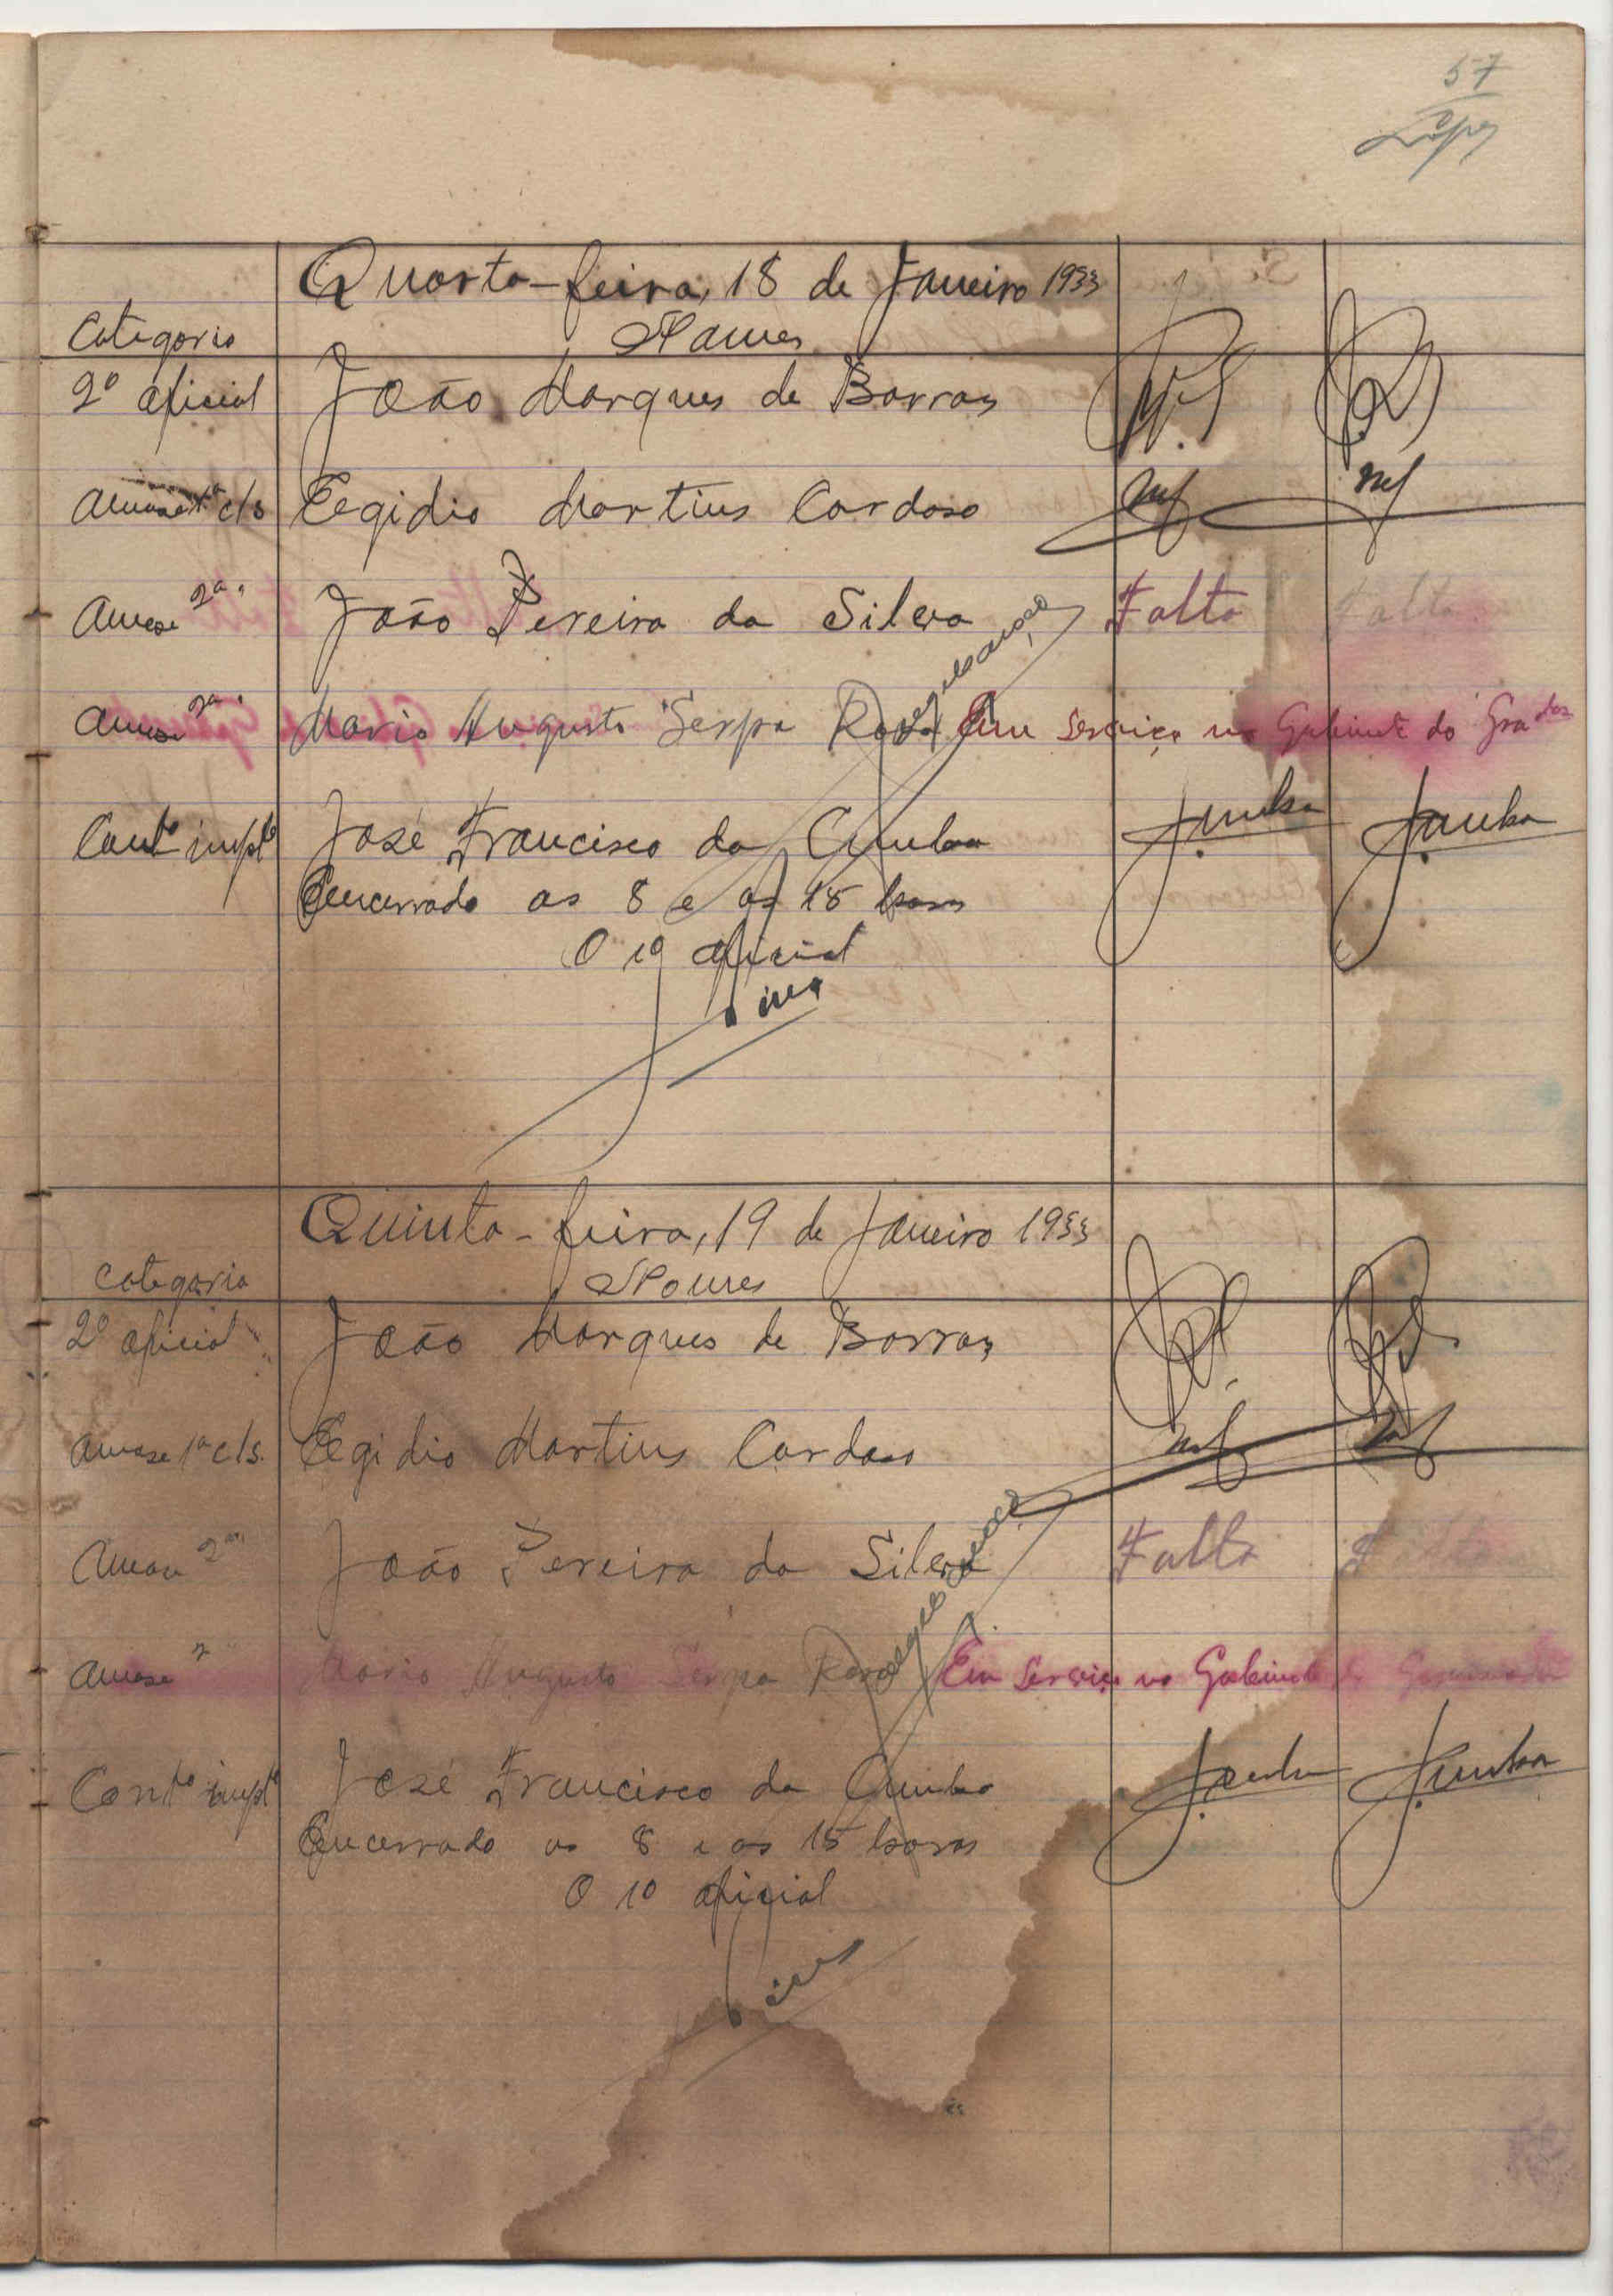 57
Lopes
Quarta-feira, 18 de Janeiro 1933
Categoria Nomes
2º oficial João Marques de Barros
Amanse 1ª cls Egidio Martins Cardoso
Amanse 2ª João Pereira da Silva Falta Falta
Amanse 2ª Mario Augusto Serpa Rosa Em Serviço no Gabinete do
Contº impº José Francisco da Cunha JCunha JCunha
Encerrado as 8 e as 15 horas
O 1º oficial
Quinta-feira, 19 de Janeiro 1933
Categoria Nomes
2º oficial João Marques de Barros
Amanse 1ª cls. Egidio Martins Cardoso
Amanse 2ª João Pereira da Silva Falta Falta
Amanse 2ª Mario Augusto Serpa Rosa Em Serviço no Gabinete do
Contº impº José Francisco da Cunha JCunha JCunha
Encerrado as 8 e as 15 horas
O 1º oficial